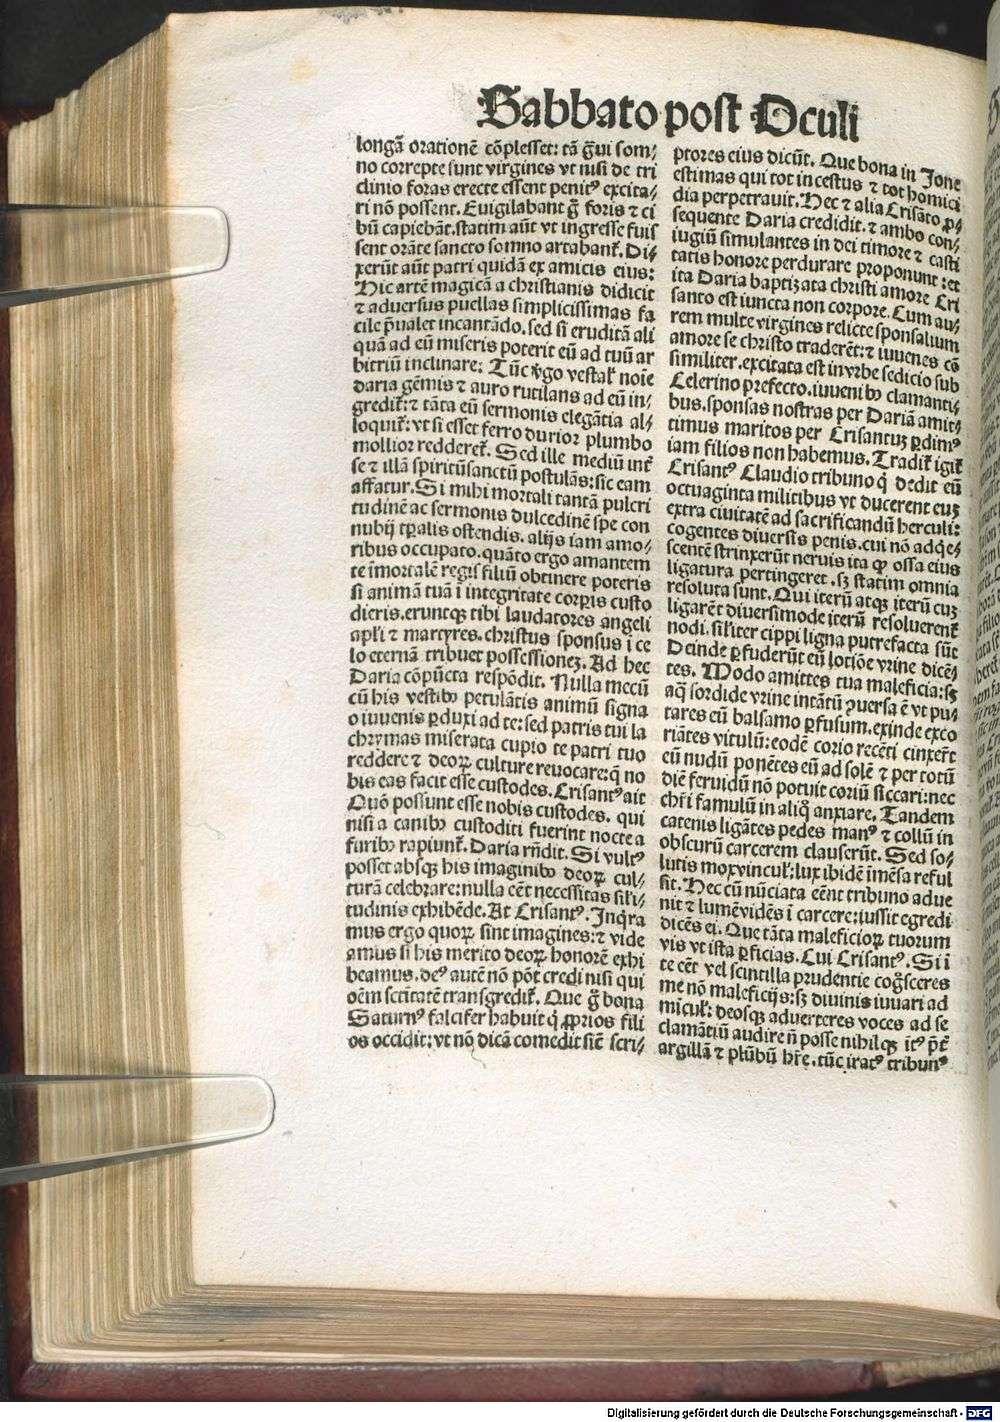 Sabbato post Oculi
longā orationē cōplesset: tā g̃ui som⸗
no correpte sunt virgines vt nisi de tri
clinio foras erecte essent penitꝰ excita⸗
ri nō possent. Euigilabant g̃ foris ⁊ ci
bū capiebāt. statim aūt vt ingresse fuis
sent orāte sancto somno artabant᷑. Di⸗
xerūt aūt patri quidā ex amicis eius:
Hic artē magicā a christianis didicit
⁊ aduersus puellas simplicissimas fa
cile p̄ualet incantādo. sed si eruditā ali
quā ad eū miseris poterit eū ad tuū ar
bitriū inclinare: Tūc v̓go vestal᷑ noīe
daria gēmis ⁊ auro rutilans ad eū in⸗
gredit᷑: ⁊ tāta eū sermonis elegātia al⸗
loquit᷑: vt si esset ferro durior plumbo
mollior redderet᷑. Sed ille mediū int᷑
se ⁊ illā spiritūsanctū postulās: sic eam
affatur. Si mihi mortali tantā pulcri
tudinē ac sermonis dulcedinē spe con
nubij tp̄alis ostendis. alijs iam amo⸗
ribus occupato. quāto ergo amantem
te īmortalē regis filiū obtinere poteris
si animā tuā ī integritate corp̄is custo
dieris. eruntqꝫ tibi laudatores angeli
apl̄i ⁊ martyres. christus sponsus ī ce
lo eternā tribuet possessioneꝫ. Ad hec
Daria cōpūcta respōdit. Nulla mecū
cū his vestibꝰ petulātis animū signa
o iuuenis ꝑduxi ad te: sed patris tui la
chrymas miserata cupio te patri tuo
reddere ⁊ deoꝝ culture reuocare: q̇ no
bis eas facit esse custodes. Crisantꝰ ait
Quō possunt esse nobis custodes. qui
nisi a canibꝰ custoditi fuerint nocte a
furibꝰ rapiunt᷑. Daria rn̄dit. Si vultꝰ
posset absqꝫ his imaginibꝰ deoꝝ cul⸗
turā celebrare: nulla eēt necessitas sil̄i⸗
tudinis exhibēde. At Crisantꝰ. Inq̇ra
mus ergo quoꝝ sint imagines: ⁊ vide
amus si his merito deoꝝ honorē exhi
beamus. deꝰ autē nō pōt credi nisi qui
oēm sctītatē transgredit᷑. Que g̃ bona
Saturnꝰ falcifer habuit q̇ ꝓprios fili
os occidit: vt nō dicā comedit sicē scri⸗
ptores eius dicūt. Que bona in Ione
estimas qui tot incestus ⁊ tot homici
dia perpetrauit. Hec ⁊ alia Crisāto ꝓ⸗
sequente Daria credidit. ⁊ ambo con⸗
iugiū simulantes in dei timore ⁊ casti
tatis honore perdurare proponunt: et
ita Daria baptizata christi amore Cri
santo est iuncta non corpore. Cum au⸗
rem multe virgines relicte sponsalium
amore se christo traderēt: ⁊ iuuenes cō
similiter. excitata est in vrbe sedicio sub
Celerino prefecto. iuuenibꝰ clamanti⸗
bus. sponsas nostras per Dariā amit⸗
timus maritos per Crisantuꝫ ꝑdimꝰ
iam filios non habemus. Tradit᷑ igit᷑
Crisantꝰ Claudio tribuno q̇ dedit eū
octuaginta militibus vt ducerent euꝫ
extra ciuitatē ad sacrificandū herculi:
cogentes diuersis penis. cui nō adq̇e⸗
scentē strinxerūt neruis ita ꝙ ossa eius
ligatura pertingeret. sꝫ statim omnia
resoluta sunt. Qui iterū atqꝫ iterū cuꝫ
ligarēt diuersimode iterū resoluerent᷑
nodi. sil̄iter cippi ligna putrefacta sūt
Deinde ꝑfuderūt eū lotiōe vrine dicē⸗
tes. Modo amittes tua maleficia: sꝫ
aq̄ sordide vrine intātū ꝯuersa ē vt pu⸗
tares eū balsamo ꝑfusum. exinde exco
riātes vitulū: eodē corio recēti cinxer̄t
eū nudū ponētes eū ad solē ⁊ per totū
diē feruidū nō potuit coriū siccari: nec
chr̄i famulū in aliq̊ anxiare. Tandem
catenis ligātes pedes manꝰ ⁊ collū in
obscurū carcerem clauserūt. Sed so⸗
lutis mox vincul᷑: lux ibidē īmēsa reful
sit. Hec cū nūciata eēnt tribuno adue
nit ⁊ lumē vidēs ī carcere: iussit egredi
dicēs ei. Que tāta maleficioꝝ tuorum
vis vt ista ꝑficias. Cui Crisantꝰ. Si ī
te eēt vel scintilla prudentie cog̊sceres
me nō maleficijs: sꝫ diuinis iuuari ad
micul᷑: deosqꝫ aduerteres voces ad se
clamātiū audire n̄ posse nihilqꝫ itꝰ p̄t᷑
argillā ⁊ plūbū hr̄e. tūc iratꝰ tribunꝰ
Digitalisierung gefördert durch die Deutsche Forschungsgemeinschaft - DFG